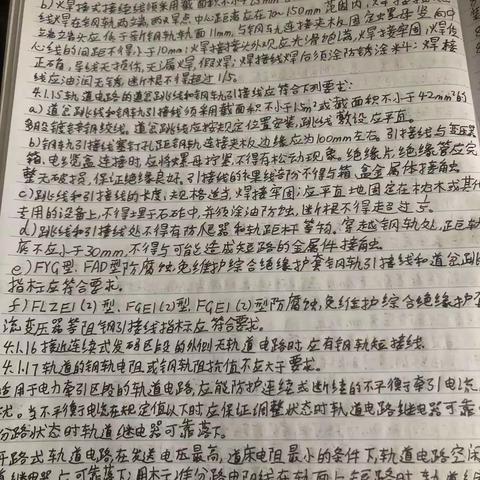 b)焊接式接续线须采用截面积不小于
在钢轨两端,两焊点中心距离应在70~150mm范围内,
于钢轨轨面11mm,与钢轨连接夹板固定
的间距不得小于10mm;焊接接头外观应光滑饱满,焊接牢固,
正不有,导线无损伤,无漏焊、假焊;焊接线焊后须涂防锈涂料;焊接
线应油润无锈,断根不得超过1/5。
4.1.15轨道电路的道岔跳线和钢轨引接线应符合下列要求:
a)道岔跳线和钢轨引接线须采用截面积不小于15mm²或截面积不小于42mm²的
多股镀锌钢绞线。道岔跳线应按规定位置安装,跳线敷设应平直。
b)钢轨引接线塞钉孔距钢轨连接夹板边缘应为100mm左右。引接线与变压器
箱、电缆盒连接时应将螺母拧紧,不得有松动现象。绝缘片、绝缘管应完
整无破损,保证绝缘良好。引接线的裸线部分不得与箱、盒金属体接触。
c)跳线和引接线的长度、规格适当,焊接牢固;应平直地固定在枕木或其他
专用的设备上,不得埋于石砟中,并须涂油防蚀,断根不得超过1/5。
d)跳线和引接线处不得有防爬器和轨距杆等物。穿越钢轨处,距轨
底不应小于30mm,不得与可能造成短路的金属件接触。
e)FYG型、FAD型防腐蚀免维护综合绝缘护套钢轨引接线和道岔跳线
指标应符合要求。
f)FLZE1(2)型、FGE1(2)型、FGE1(2)型防腐蚀,免维护综合绝缘护套
流变压器等阻钢引接线指标应符合要求。
4.1.16接近连续式发码区段的纵列无轨道电路时应有钢轨短接线。
4.1.17轨道的钢轨电阻或钢轨阻抗值不应大于要求。
适用于电力牵引区段的轨道电路,应能防护连续或断续的不平衡牵引电流
扰。当不平衡电流在规定值以下时应保证调整状态时轨道电路继电器可靠
分路状态时轨道继电器可靠落下。
开路式轨道电路,在发送电压最高,道床电阻最小的条件下,轨道电路空闲
道继电器应可靠落下;用标准分路电阻线在轨面上短路时,轨道继